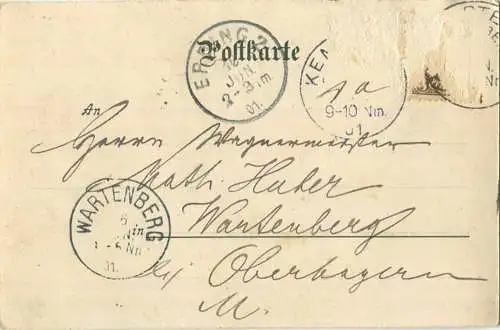 Postkarte
ERDING. 2.
JUN
2-3 Nm.
01.
KEM
9-10 Nm.
01
An
Herrn Wagnermeister
Math. Huber
Wartenberg
bei Oberbayern
M.
WARTENBERG
6
01.